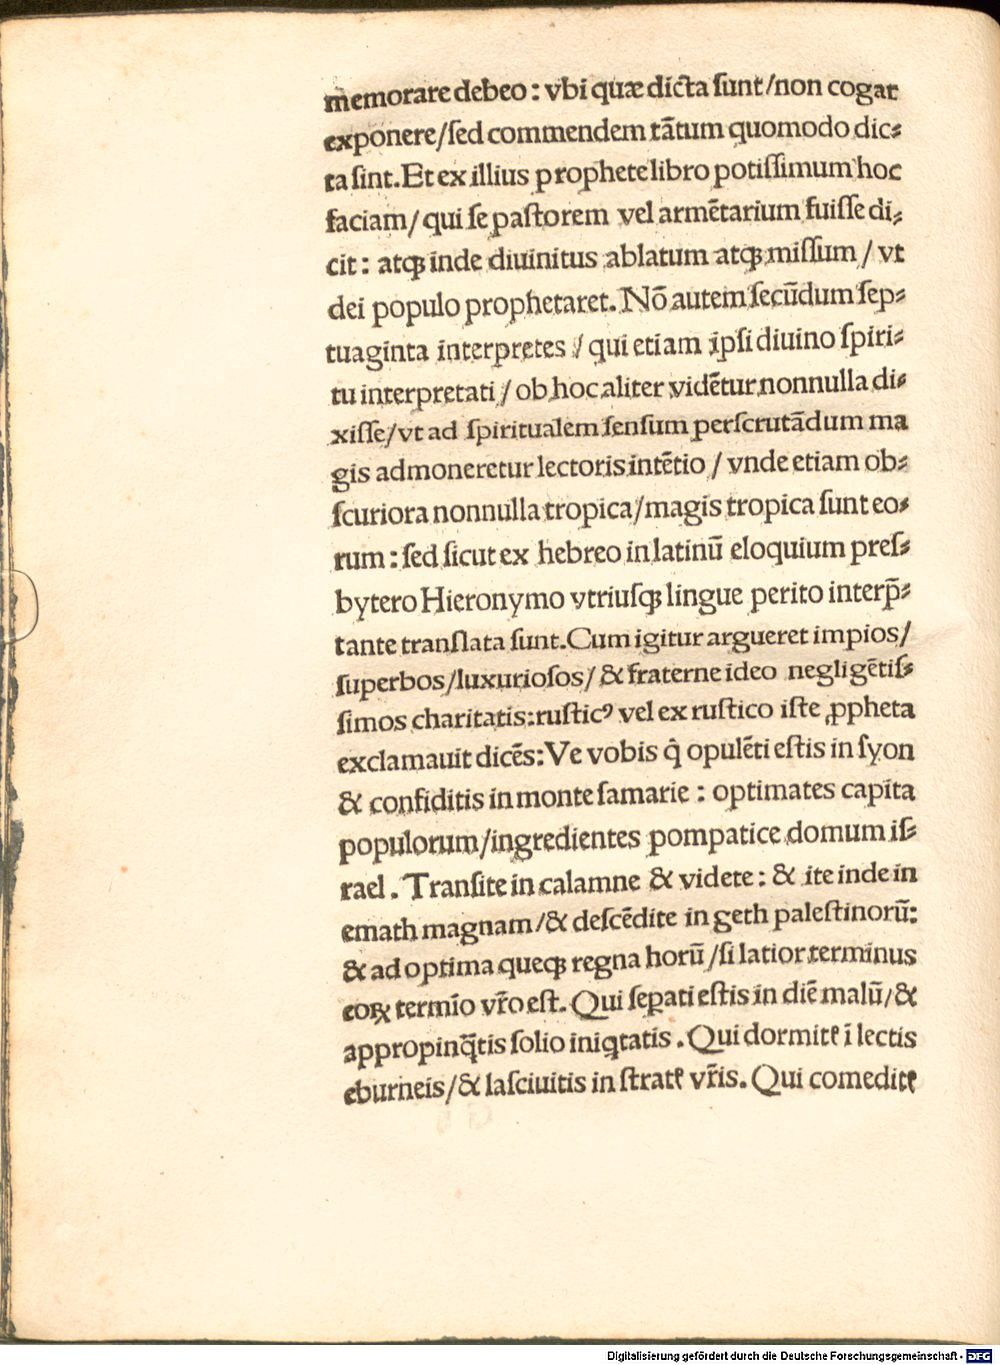 memorare debeo : vbi quæ dicta ſunt/non cogar
exponere/ſed commendem tātum quomodo dic⸗
ta ſint.Et ex illius prophete libro potiſſimum hoc
faciam/ qui ſe paſtorem vel armētarium fuiſſe di⸗
cit : atqꝫ inde diuinitus ablatum atqꝫ miſſum / vt
dei populo prophetaret. Nō autem ſecūdum ſep⸗
tuaginta interpretes / qui etiam ipſi diuino ſpiri⸗
tu interpretati / ob hoc aliter vidētur nonnulla di⸗
xiſſe/vt ad ſpiritualem ſenſum perſcrutādum ma
gis admoneretur lectoris intētio / vnde etiam ob⸗
ſcuriora nonnulla tropica/magis tropica ſunt eo⸗
rum : ſed ſicut ex hebreo in latinū eloquium preſ⸗
bytero Hieronymo vtriuſqꝫ lingue perito interp̄⸗
tante tranſlata ſunt.Cum igitur argueret impios/
ſuperbos/luxurioſos/ & fraterne ideo negligētiſ⸗
ſimos charitatis:ruſticꝰ vel ex ruſtico iſte ꝓpheta
exclamauit dicēs: Ve vobis q̄ opulēti eſtis in ſyon
& confiditis in monte ſamarie : optimates capita
populorum/ingredientes pompatice domum iſ⸗
rael . Tranſite in calamne & videte : & ite inde in
emath magnam/& deſcēdite in geth paleſtinorū:
& ad optima queqꝫ regna horū /ſi latior terminus
eoꝝ termīo vr̄o eſt. Qui ſepati eſtis in diē malū/&
appropinq̄tis ſolio iniqtatis . Qui dormitꝭ ī lectis
eburneis/& laſciuitis in ſtratꝭ vr̄is. Qui comeditꝭ
Digitalisierung gefördert durch die Deutsche Forschungsgemeinschaft - DFG